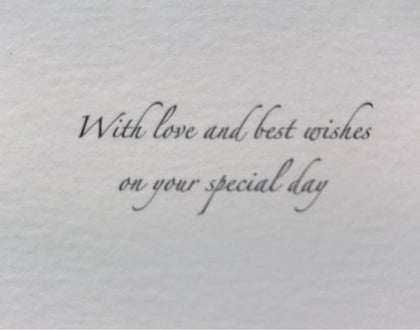 With love and best wishes
on your special day